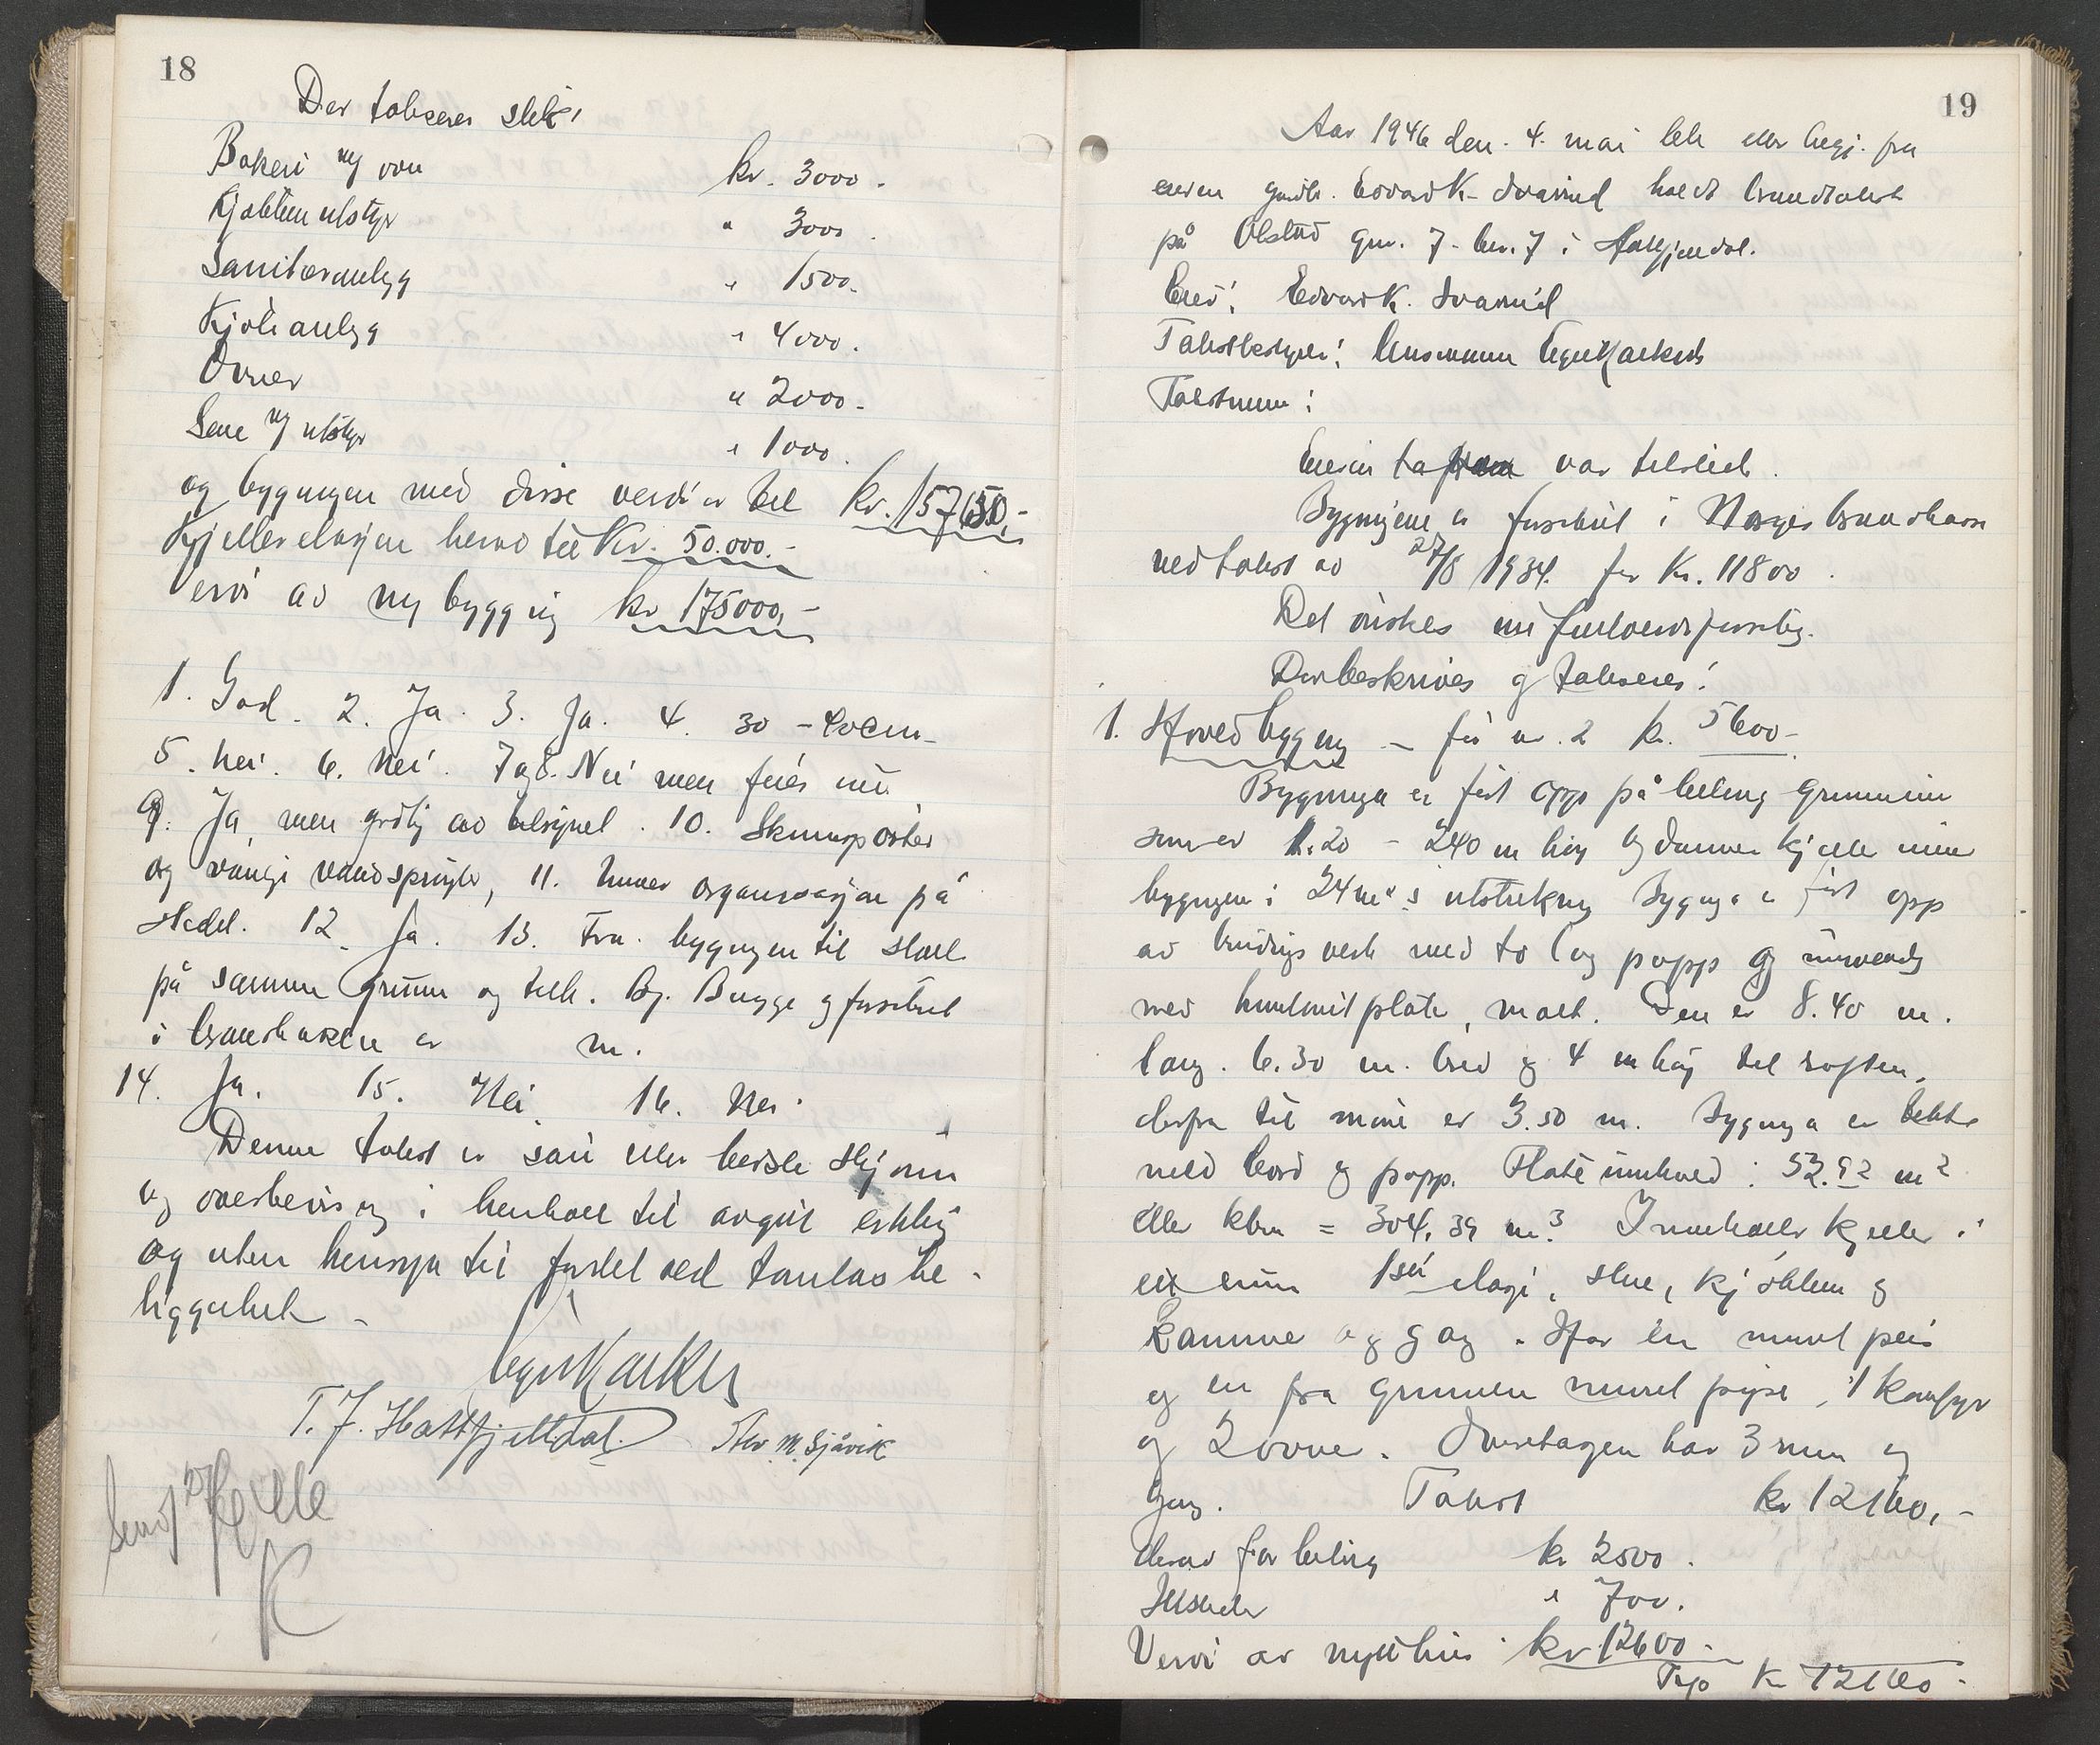 18
Der takseres slik:
Bakeri og ovn kr. 3000.-
Kjøkkenutstyr " 3000.
Sanitæranlegg " 1500.-
Kjøleanlegg " 4000.
Ovner " 2000.-
Scene og utstyr " 1000.
og bygningen med disse verdier til kr. 157650,-
Kjelleretasjen herav til Kr. 50.000.-
Verdi av ny bygging kr 175000,-
1. God. 2. Ja. 3. Ja. 4. 30 - 40cm-
5. Nei. 6. Nei. 7 og 8. Nei men feies nu
9. Ja, men ardlig av tilsynet. 10. Skumaparater
og vanlige vandsprøyter, 11. Under organisasjon på
stedet. 12. Ja. 13. Fra bygningen til stall
på samme grunn og tilh. Bj. Bugge og forsikret
i brandkassen er m.
14. Ja. 15. Nei. 16. Nei.
Denne takst er satt etter bedste skjønn
og overbevisning i henhold til avgitt erklæring
og uten hensyn til fordel ved tomtas be-
liggenhet -
T. J. Hattfjelldal. Alv. M. Sjåvik
Send Helle
K
19
Aar 1946 den 4. mai ble etter begj. fra
eieren gardbr. Edvard K. Svarlid holdt brandtakst
på Olstad gnr. 7 - bnr. 7 i Hattfjelldal.
Eier: Edvard K. Svarlid
Takstbestyrer: lensmann
Takstmenn:
Eieren var tilsted.
Bygningene er forsikret i Norges brandkasse
ved takst av 27/8 1934. for Kr. 11800.
Det ønskes nu fullverdiforsikring.
Der beskrives og takseres:
1. Hovedbygning - før nr. 2 kr. 5600-
Bygninga er ført opp på beting grunnmur
som er 1.20 - 240 m høy og danner kjeller under
bygningen i 24m² s utstrekning Bygninga er ført opp
av bindingsverk med to lag papp og innvendig
med huntonitplate, malt. Den er 8.40 m.
lang. 6.30 m. bred og 4 m høy til raften.
derfra til møne er 3.50 m. Bygninga er tekket
med bord og papp. Flateinnhold: 52.92 m²
eller kbm = 304.39 m³. Inneholder kjeller i
ett rum 1ste etasje, stue, kjøkken og
kammer og gang. Har en muret peis
og en fra grunnen muret pipe, 1 komfyr
og 2 ovner. Overetasjen har 3 rum og
gang. Takst kr 12160,-
derav for beting kr 2500.
Ildsteder " 700.
Verdi av nytt hus kr. 12600.-
Trsp Kr 12160-